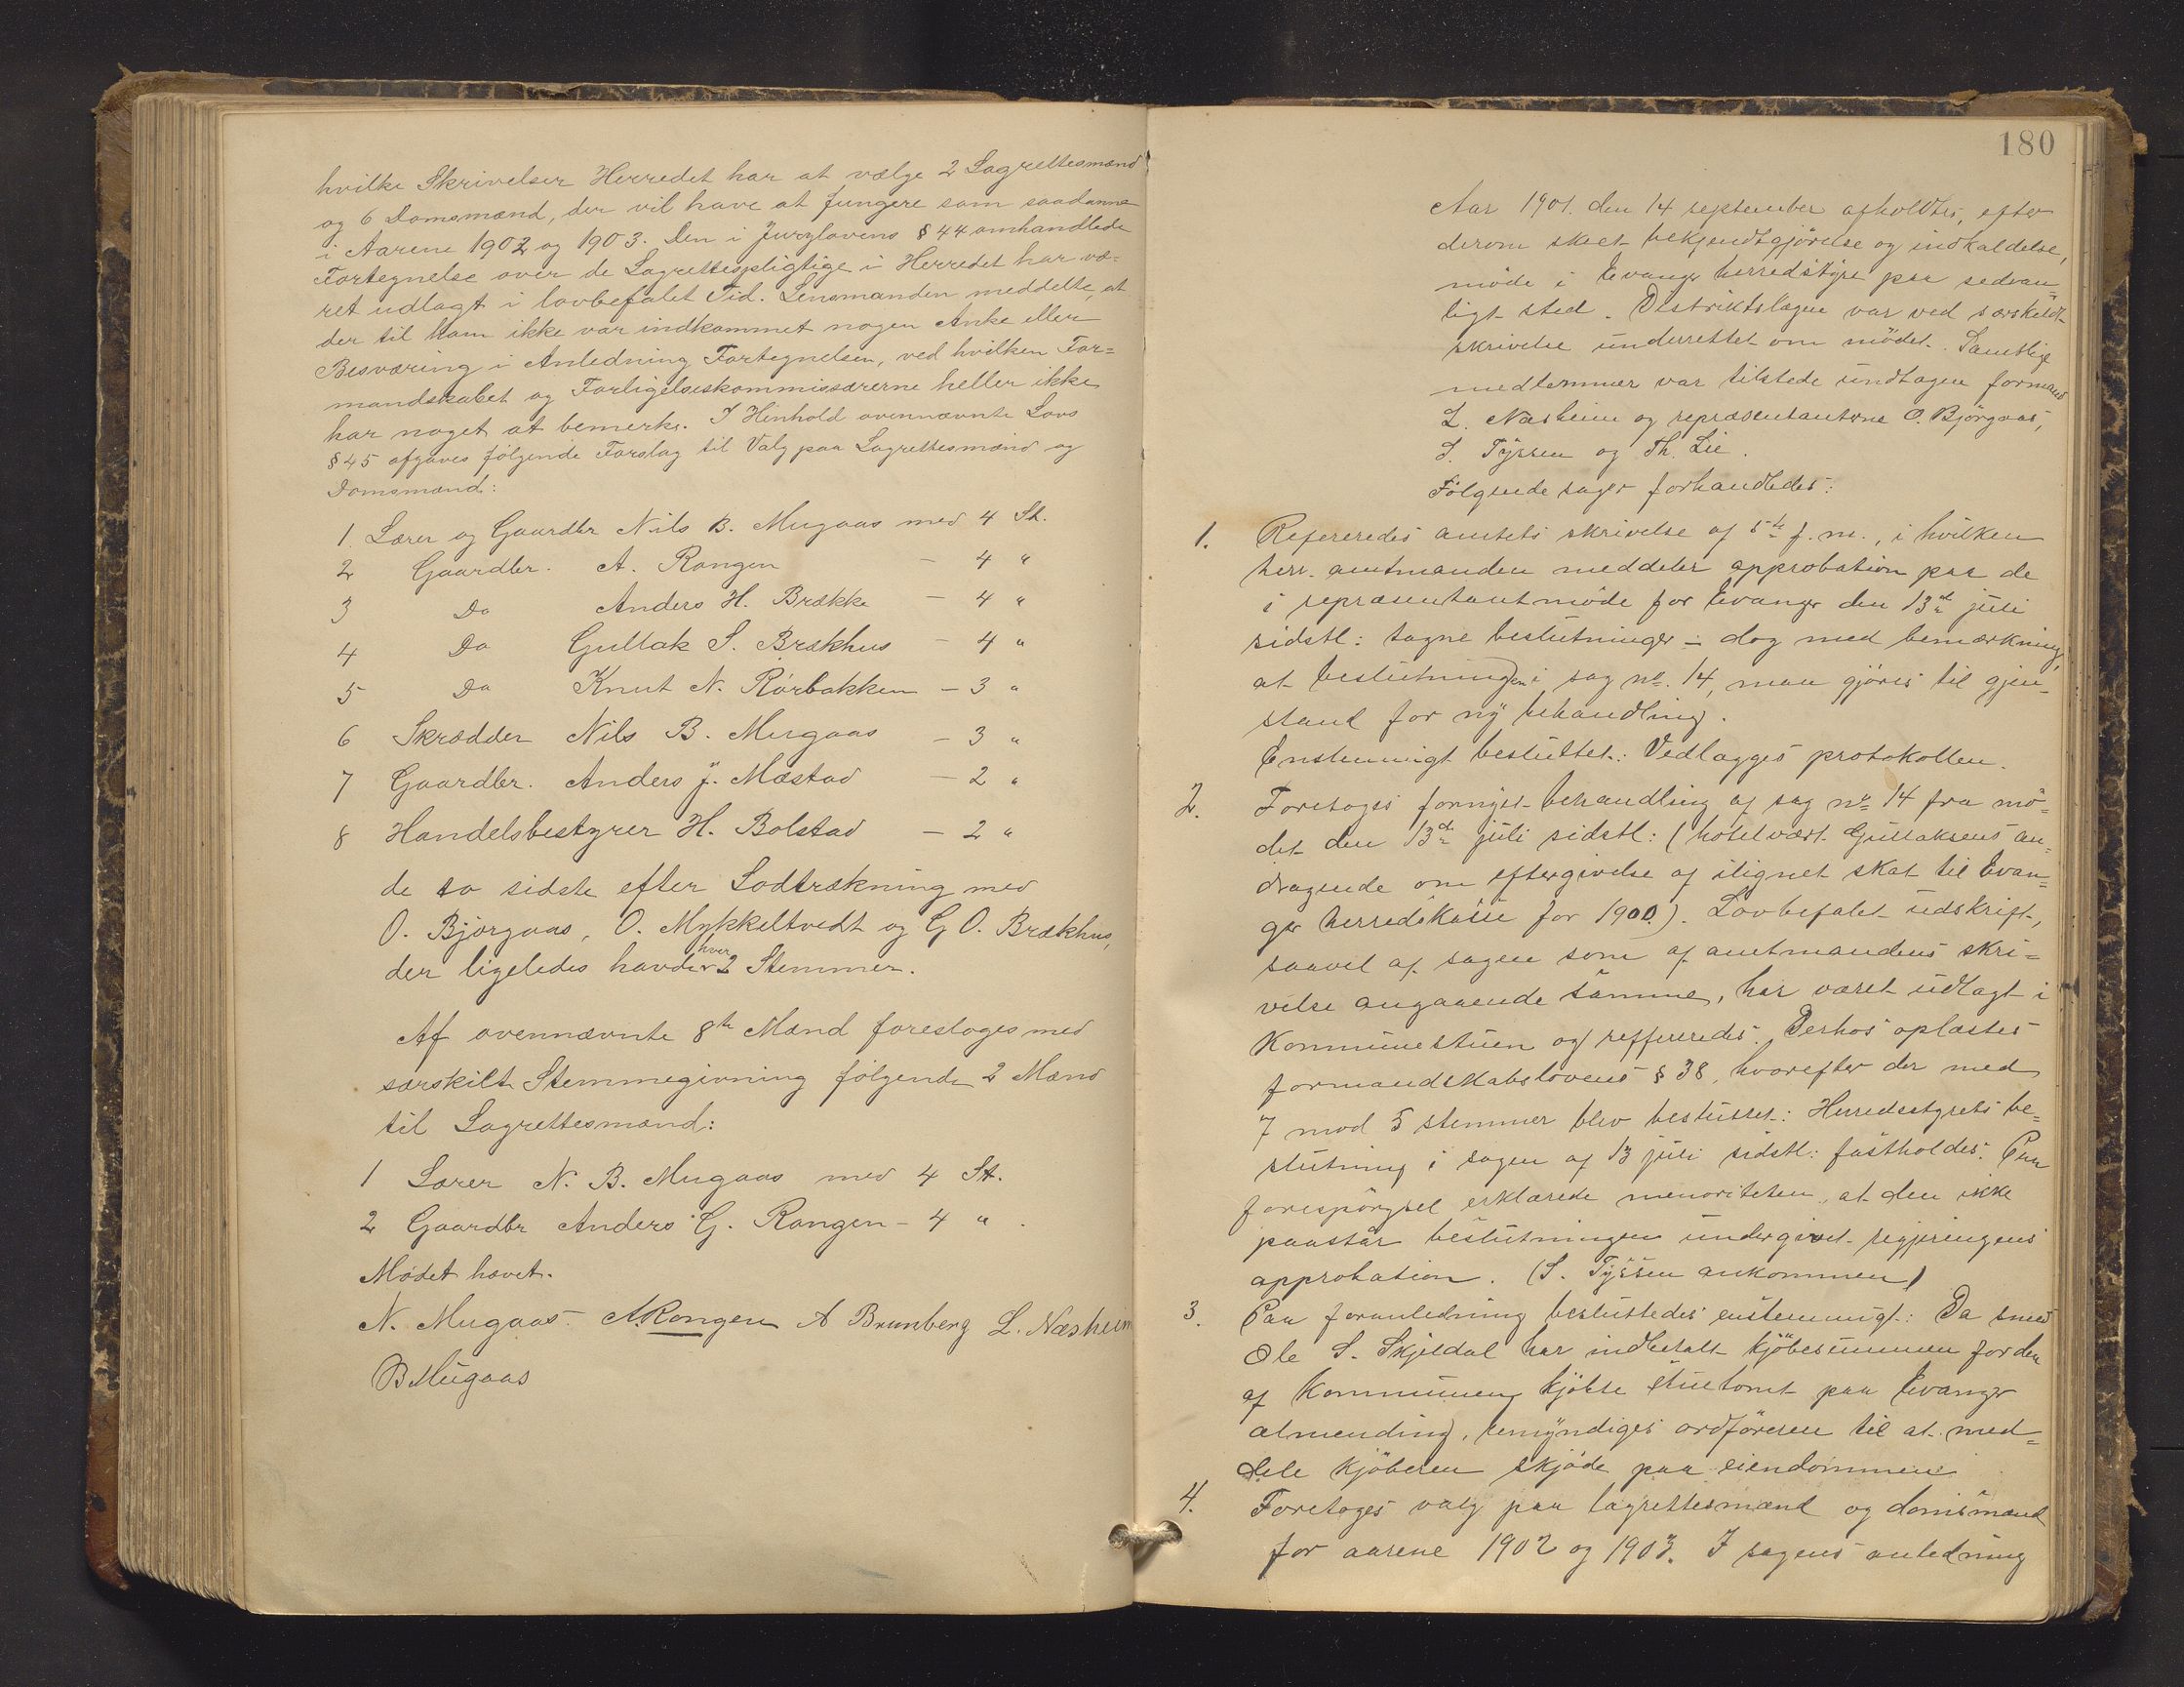 hvilke Skrivelser Herredet har at vælge 2 Lagrettesmænd
og 6 Domsmænd, der vil have at fungere som saadanne
i Aarene 1902 og 1903. Den i Jurylovens § 44 omhandlede
Fortegnelse over de Lagrettespligtige i Herredet har væ=
ret udlagt i lovbefalet Tid. Lensmanden meddelte, at
der til ham ikke var indkommet nogen Anke eller
Besværing i Anledning Fortegnelsen, ved hvilken For=
mandskabet og Forligelseskommissærerne heller ikke
har noget at bemerke. I Henhold ovennævnte Lovs
§ 45 afgaves følgende Forslag til Valg paa Lagrettesmænd og
Domsmænd:
1 Lærer og Gaardbr Nils B. Mugaas med 4 St.
2 Gaardbr. A. Rongen — 4 "
3 Do Anders H. Brække — 4 "
4 Do Gullak S. Brækhus — 4 "
5 Do Knut N. Rørbakken — 3 "
6 Skrædder Nils B. Mugaas — 3 "
7 Gaardbr. Anders J. Mæstad — 2 "
8 Handelsbestyrer H. Bolstad — 2 "
de to sidste efter Lodtrækning med
O. Bjørgaas, O. Mykkeltvedt og G O. Brækhus,
der ligeledes havde hver 2 Stemmer.
Af ovennævnte 8te Mænd foresloges med
særskilt Stemmegivning følgende 2 Mænd
til Lagrettesmænd:
1 Lærer N. B. Mugaas med 4 St.
2 Gaardbr Anders G. Rongen – 4 " .
Mødet hævet.
N. Mugaas A. Rongen A Brunberg L. Næsheim
B Mugaas
180
Aar 1901. den 14 september afholdtes, efter
derom skeet bekjendtgjørelse og indkaldelse,
møde i Evanger herredstyre paa sedvan=
ligt sted. Distriktslægen var ved særskildt
skrivelse underrettet om mødet. Samtlige
medlemmer var tilstede undtagen formand
L. Næsheim og repræsentanterne O. Bjørgaas,
S. Tyssen og Th. Lie.
Følgende sager forhandledes:
1. Refereredes amtets skrivelse af 5te f. m., i hvilken
herr. amtmanden meddeler approbation paa de
i repræsentantmøde for Evanger den 13de juli
sidstl: tagne beslutninger – dog med bemærkning,
at beslutningen i sag no. 14, maa gjøres til gjen=
stand for ny behandling.
Enstemmigt besluttet: Vedlægges protokollen.
2. Foretoges fornyet behandling af sag no 14 fra mø=
det den 13de juli sidstl: (hotelvært Gullaksens an=
dragende om eftergivelse af ilignet skat til Evan=
ger herredskasse for 1900). Lovbefalet udskrift,
saavel af sagen som af amtmandens skri=
velse angaaende samme, har været udlagt i
Kommunestuen og reffereredes. Derhos oplæstes
formandskabslovens § 38, hvorefter der med
7 mod 5 stemmer blev besluttet: Herredsstyrets be=
slutning i sagen af 13 juli sidstl: fastholdes. Paa
forespørgsel erklærede menoriteten, at den ikke
paastår beslutningen undergivet regjeringens
approbation. (S. Tyssen ankommen)
3. Paa foranledning besluttedes enstemmigt: Da smed
Ole S. Skjeldal har indbetalt kjøbesummen for den
af Kommunen kjøbte stuetomt paa Evanger
almending, bemyndiges ordføreren til at med=
dele kjøberen skjøde paa eiendommen.
4. Foretoges valg paa lagrettesmænd og domsmænd
for aarene 1902 og 1903. I sagens anledning